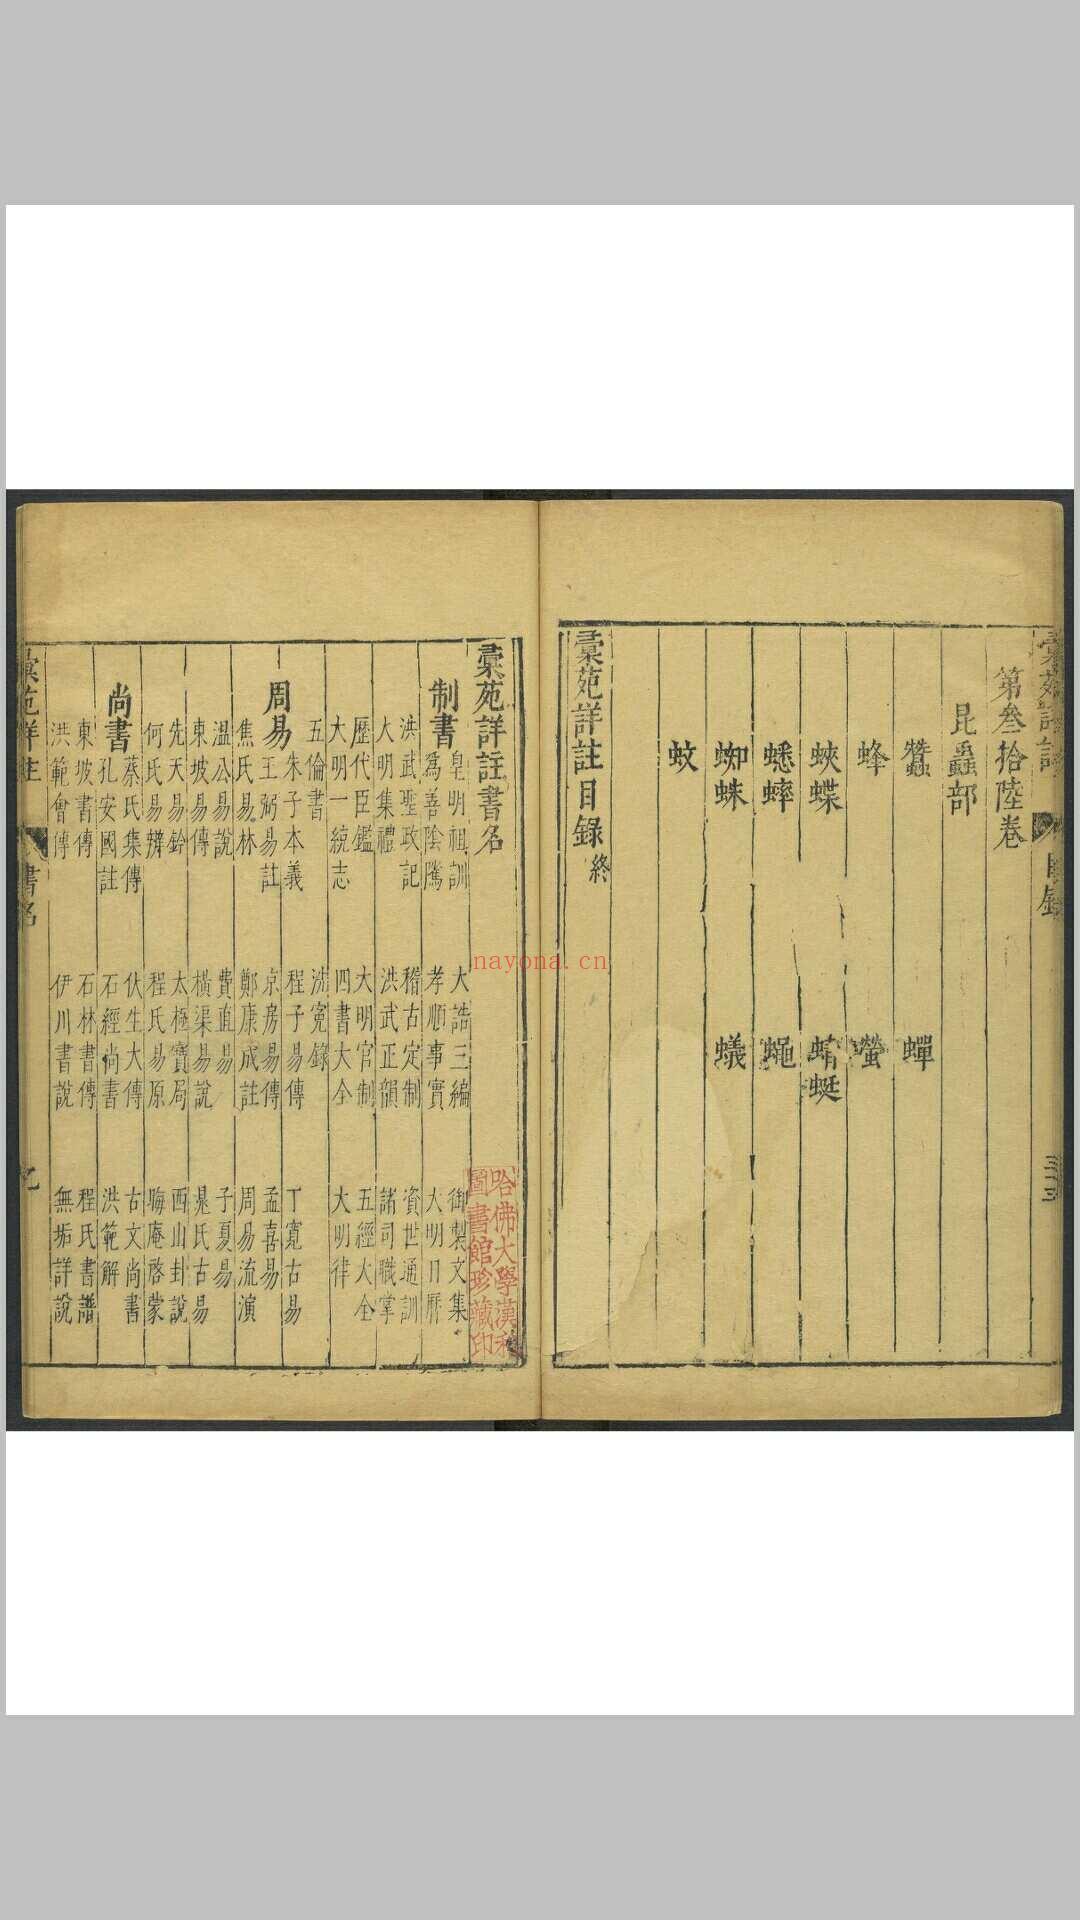 彚苑詳註
目錄
第叄拾陸卷
昆蟲部
蠶　蟬
蜂　螢
蛺蝶　蜻蜓
蟋蟀　蠅
蜘蛛　蟻
蚊
彚苑詳註目錄終
彚苑詳註書名
制書
皇明祖訓　大誥三編　御製文集
爲善陰隲　孝順事實　大明日曆
洪武聖政記　稽古定制　資世通訓
大明集禮　洪武正韻　諸司職掌
歷代臣鑑　大明官制　五經大全
大明一統志　四書大全　大明律
五倫書　洗冤錄
周易
朱子本義　程子易傳　丁寬古易
王弼易註　京房易傳　孟喜易
焦氏易林　鄭康成註　周易流演
溫公易說　費直易　子夏易
東坡易傳　橫渠易說　晁氏古易
先天易鈐　太極寶局　西山封說
何氏易辨　程氏易原　晦庵啓蒙
尚書
蔡氏集傳　伏生大傳　古文尚書
孔安國註　石經尚書　洪範解
東坡書傳　石林書傳　程氏書譜
洪範會傳　伊川書說　無垢詳說
彚苑詳註
書名
哈佛大學漢和
圖書館珍藏印
nayona.cn